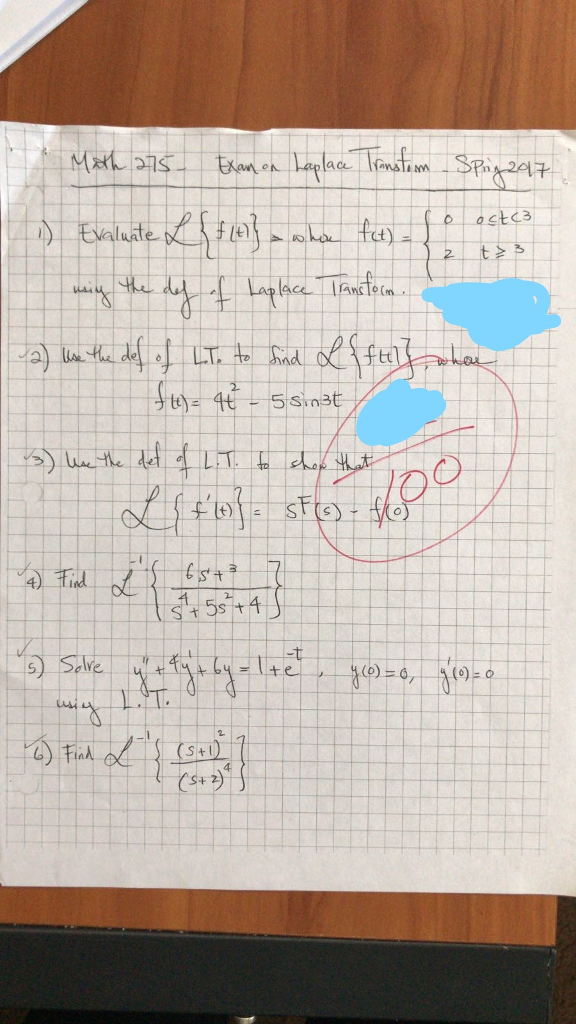 Math 275 - Exam on Laplace Transform - Spring 2017
1) Evaluate ℒ{f(t)}, where f(t) = { 0 0≤t<3
2 t≥3
using the def of Laplace Transform.
2) Use the def of L.T. to find ℒ{f(t)}, where
f(t) = 4t² - 5 sin3t
3) Use the def of L.T. to show that
ℒ{f'(t)} = sF(s) - f(0)
/100
4) Find ℒ⁻¹{ (6s+3)/(s⁴+5s²+4) }
5) Solve y''+4y'+6y = 1+e⁻ᵗ, y(0)=0, y'(0)=0
using L.T.
6) Find ℒ⁻¹{ (s+1)²/(s+2)⁴ }